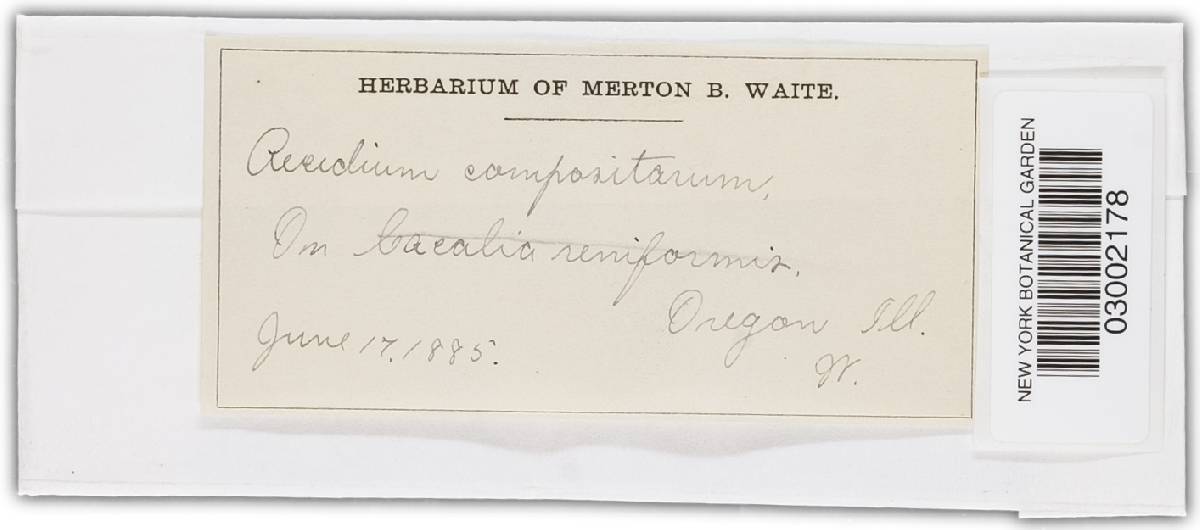 HERBARIUM OF MERTON B. WAITE.
Aecidium compositarum,
On Cacalia reniformis.
Oregon Ill.
June 17, 1885.
W.
NEW YORK BOTANICAL GARDEN
03002178